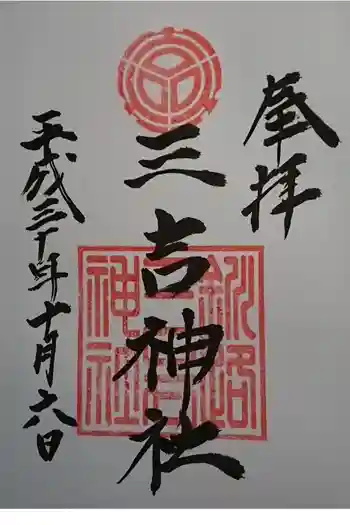 奉拝
三吉神社
釧路
三吉
神社
平成三十年十月六日